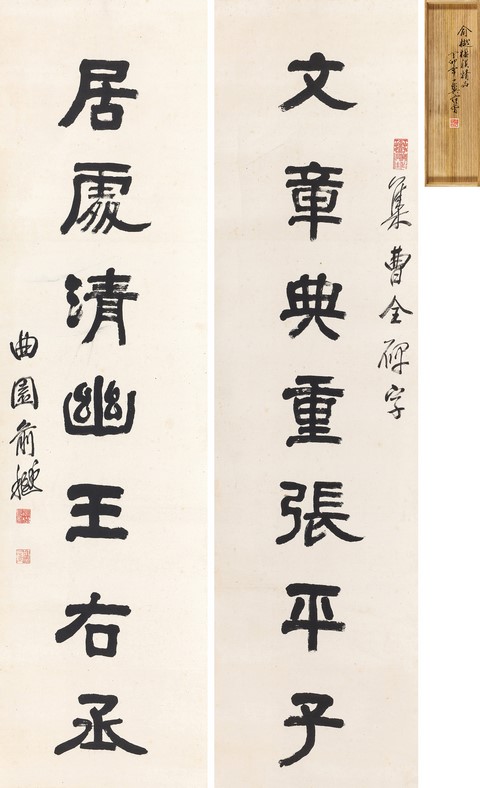 集曹全碑字
文章典重張平子
居處清幽王右丞
曲園俞樾
俞樾楹聯精品